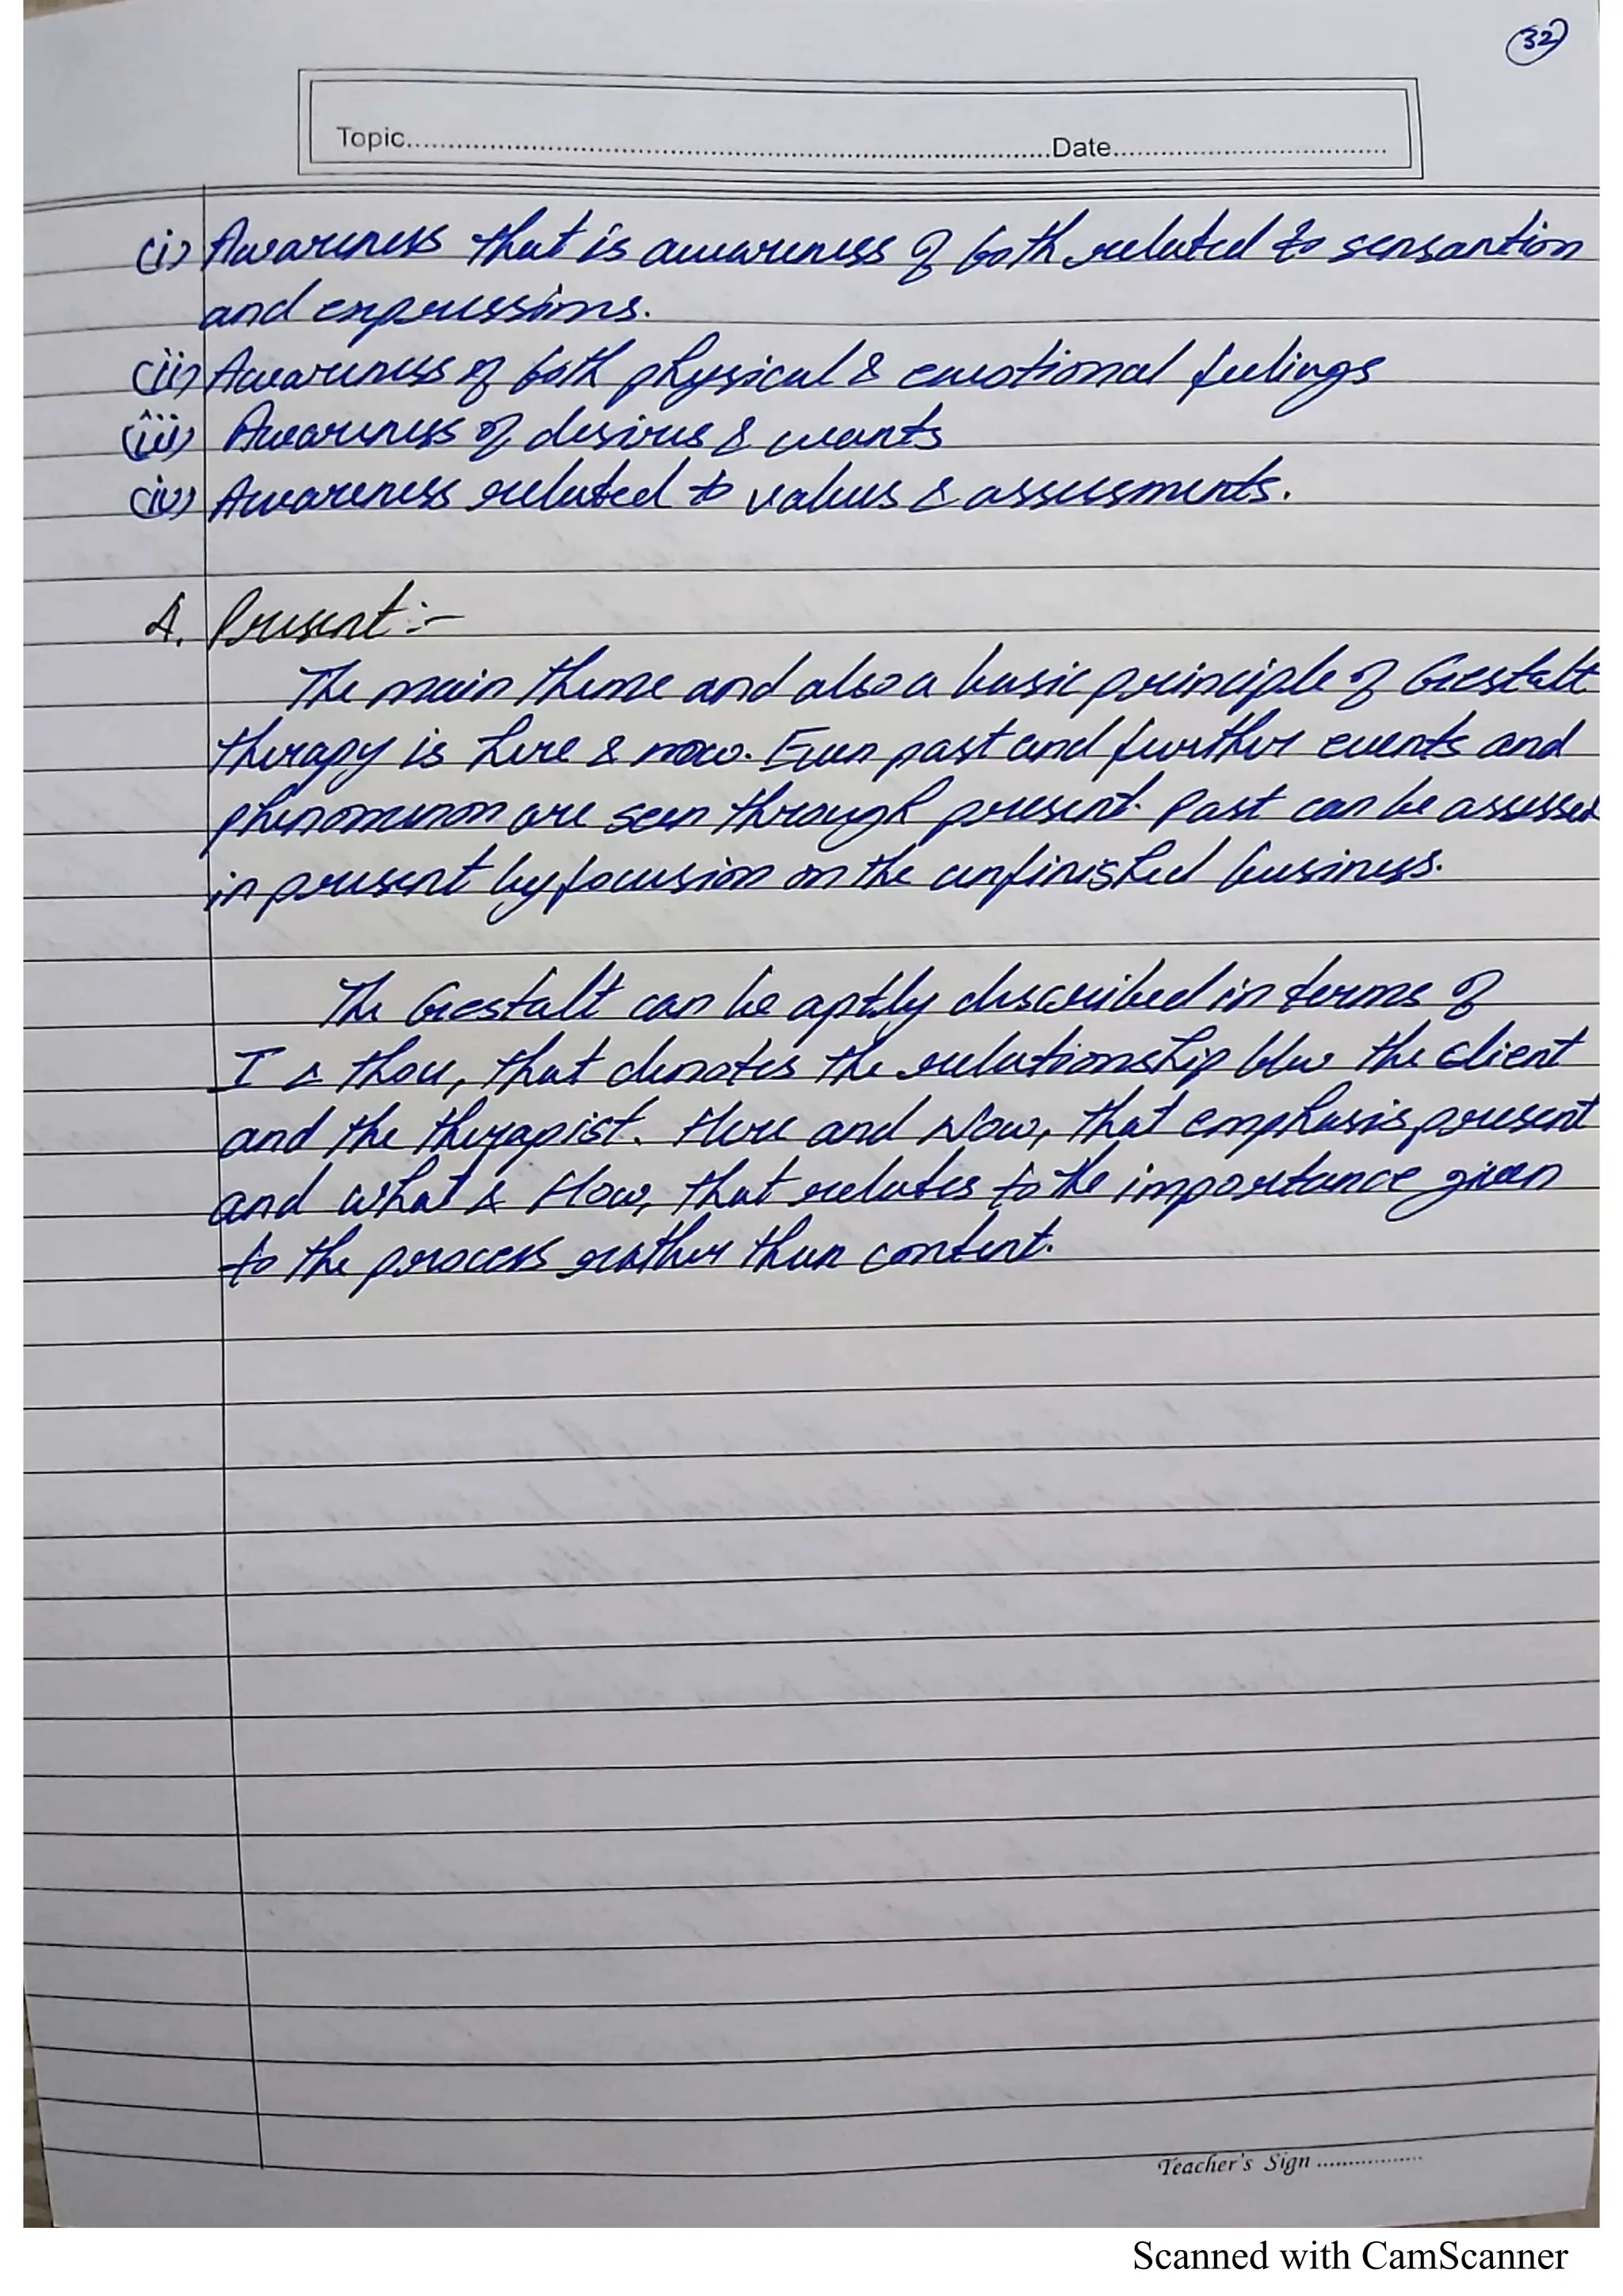 32
Topic..........Date..........
(i) Awareness that is awareness of both related to sensantion
and expressions.
(ii) Awareness of both physical & emotional feelings
(iii) Awareness of desires & wants
(iv) Awareness related to values & assessments.
4. Present :-
The main theme and also a basic principle of Gestalt
therapy is here & now. Even past and further events and
phenomenon are seen through present. Past can be assessed
in present by focusion on the unfinished business.
The Gestalt can be aptly described in terms of
I & thou, that denotes the relationship b/w the client
and the therapist. Here and Now, that emphasis present
and what & How, that relates to the importance given
to the process rather than content.
Teacher's Sign ..........
Scanned with CamScanner